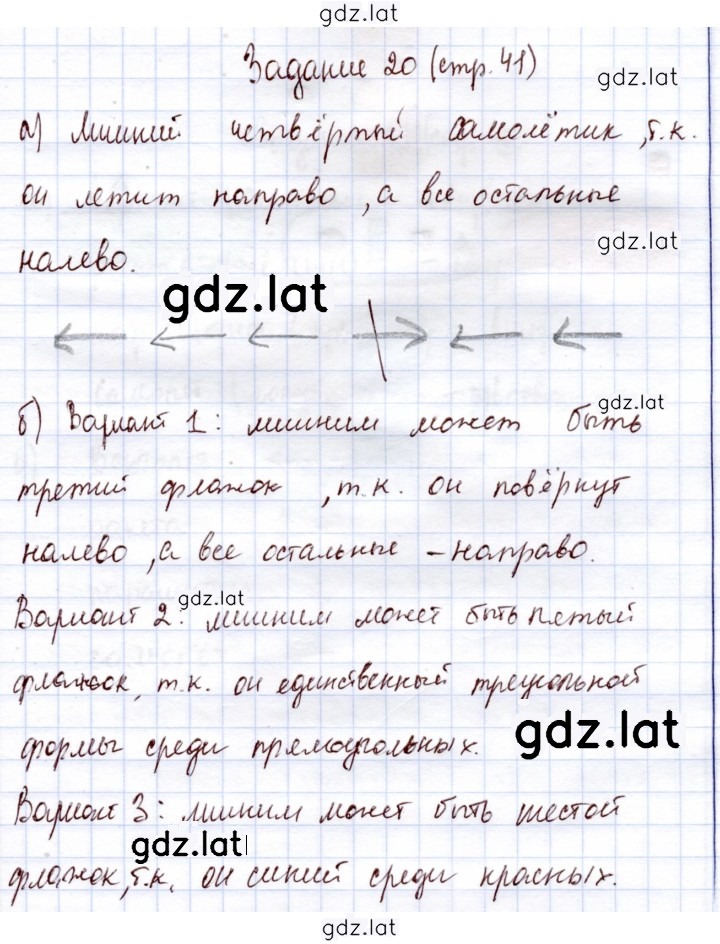 gdz.lat
Задание 20 (стр. 41)
gdz.lat
а) Лишний четвёртый самолётик, т.к.
он летит направо, а все остальные
gdz.lat
налево.
gdz.lat
б) Вариант 1: лишним может быть
gdz.lat
третий флажок, т.к. он повёрнут
налево, а все остальные – направо.
gdz.lat
Вариант 2: лишним может быть пятый
флажок, т.к. он единственный треугольной
gdz.lat
формы среди прямоугольных.
Вариант 3: лишним может быть шестой
gdz.lat
флажок, т.к. он синий среди красных.
gdz.lat